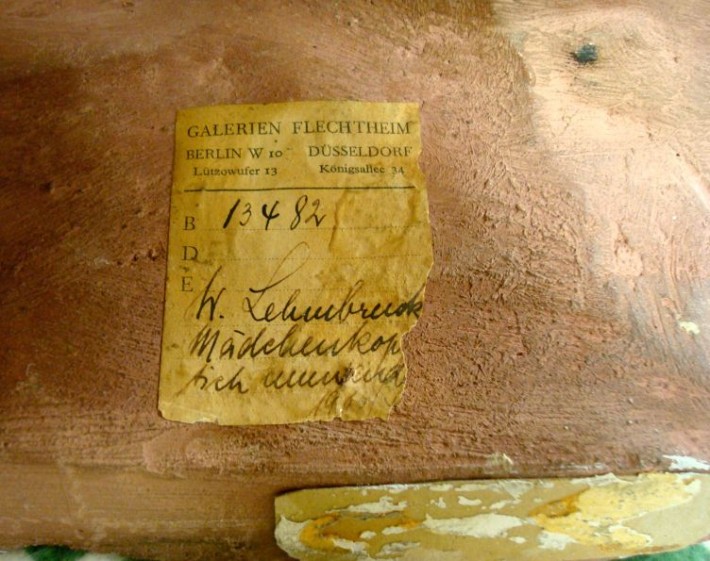 GALERIEN FLECHTHEIM
BERLIN W 10 DÜSSELDORF
Lützowufer 13 Königsallee 34
B 13482
D
E
W. Lehmbruck
Mädchenkop
sich